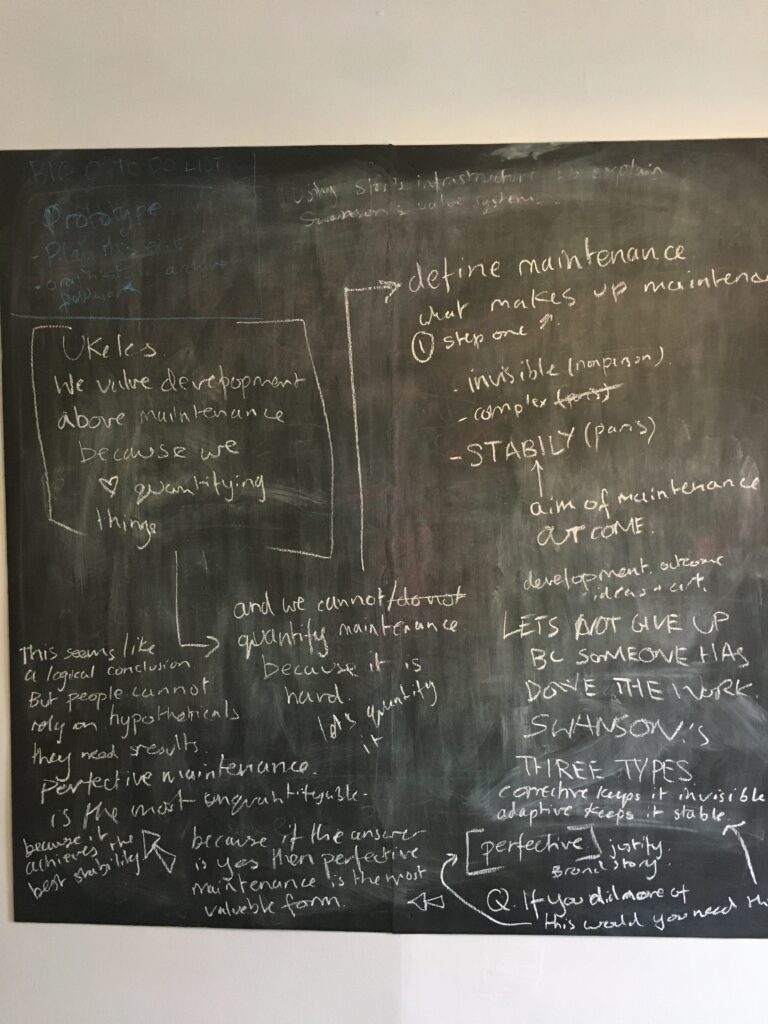 BIG O' TO DO LIST
Prototype
- Plan this out
Using infrastructure to explain
Swanson's value system.
define maintenance
what makes up maintenan
① step one
- invisible (nonperson)
- complex (paris)
- STABILY (paris)
aim of maintenance
OUTCOME.
development. outcome
ideas + art.
Ukeles.
We value development
above maintenance
because we
♡ quantifying
things
and we cannot/do not
quantify maintenance
because it is
hard.
lets quantify
it
This seems like
a logical conclusion
But people cannot
rely on hypotheticals
they need results.
Perfective maintenance.
is the most unquantifyable.
because it
achieves the
best stability
because if the answer
is yes then perfective
maintenance is the most
valueble form.
LETS NOT GIVE UP
BC SOMEONE HAS
DONE THE WORK.
SWANSON'S
THREE TYPES
corrective keeps it invisible
adaptive keeps it stable
[perfective] justify.
Brand story.
Q. If you did more of
this would you need thi